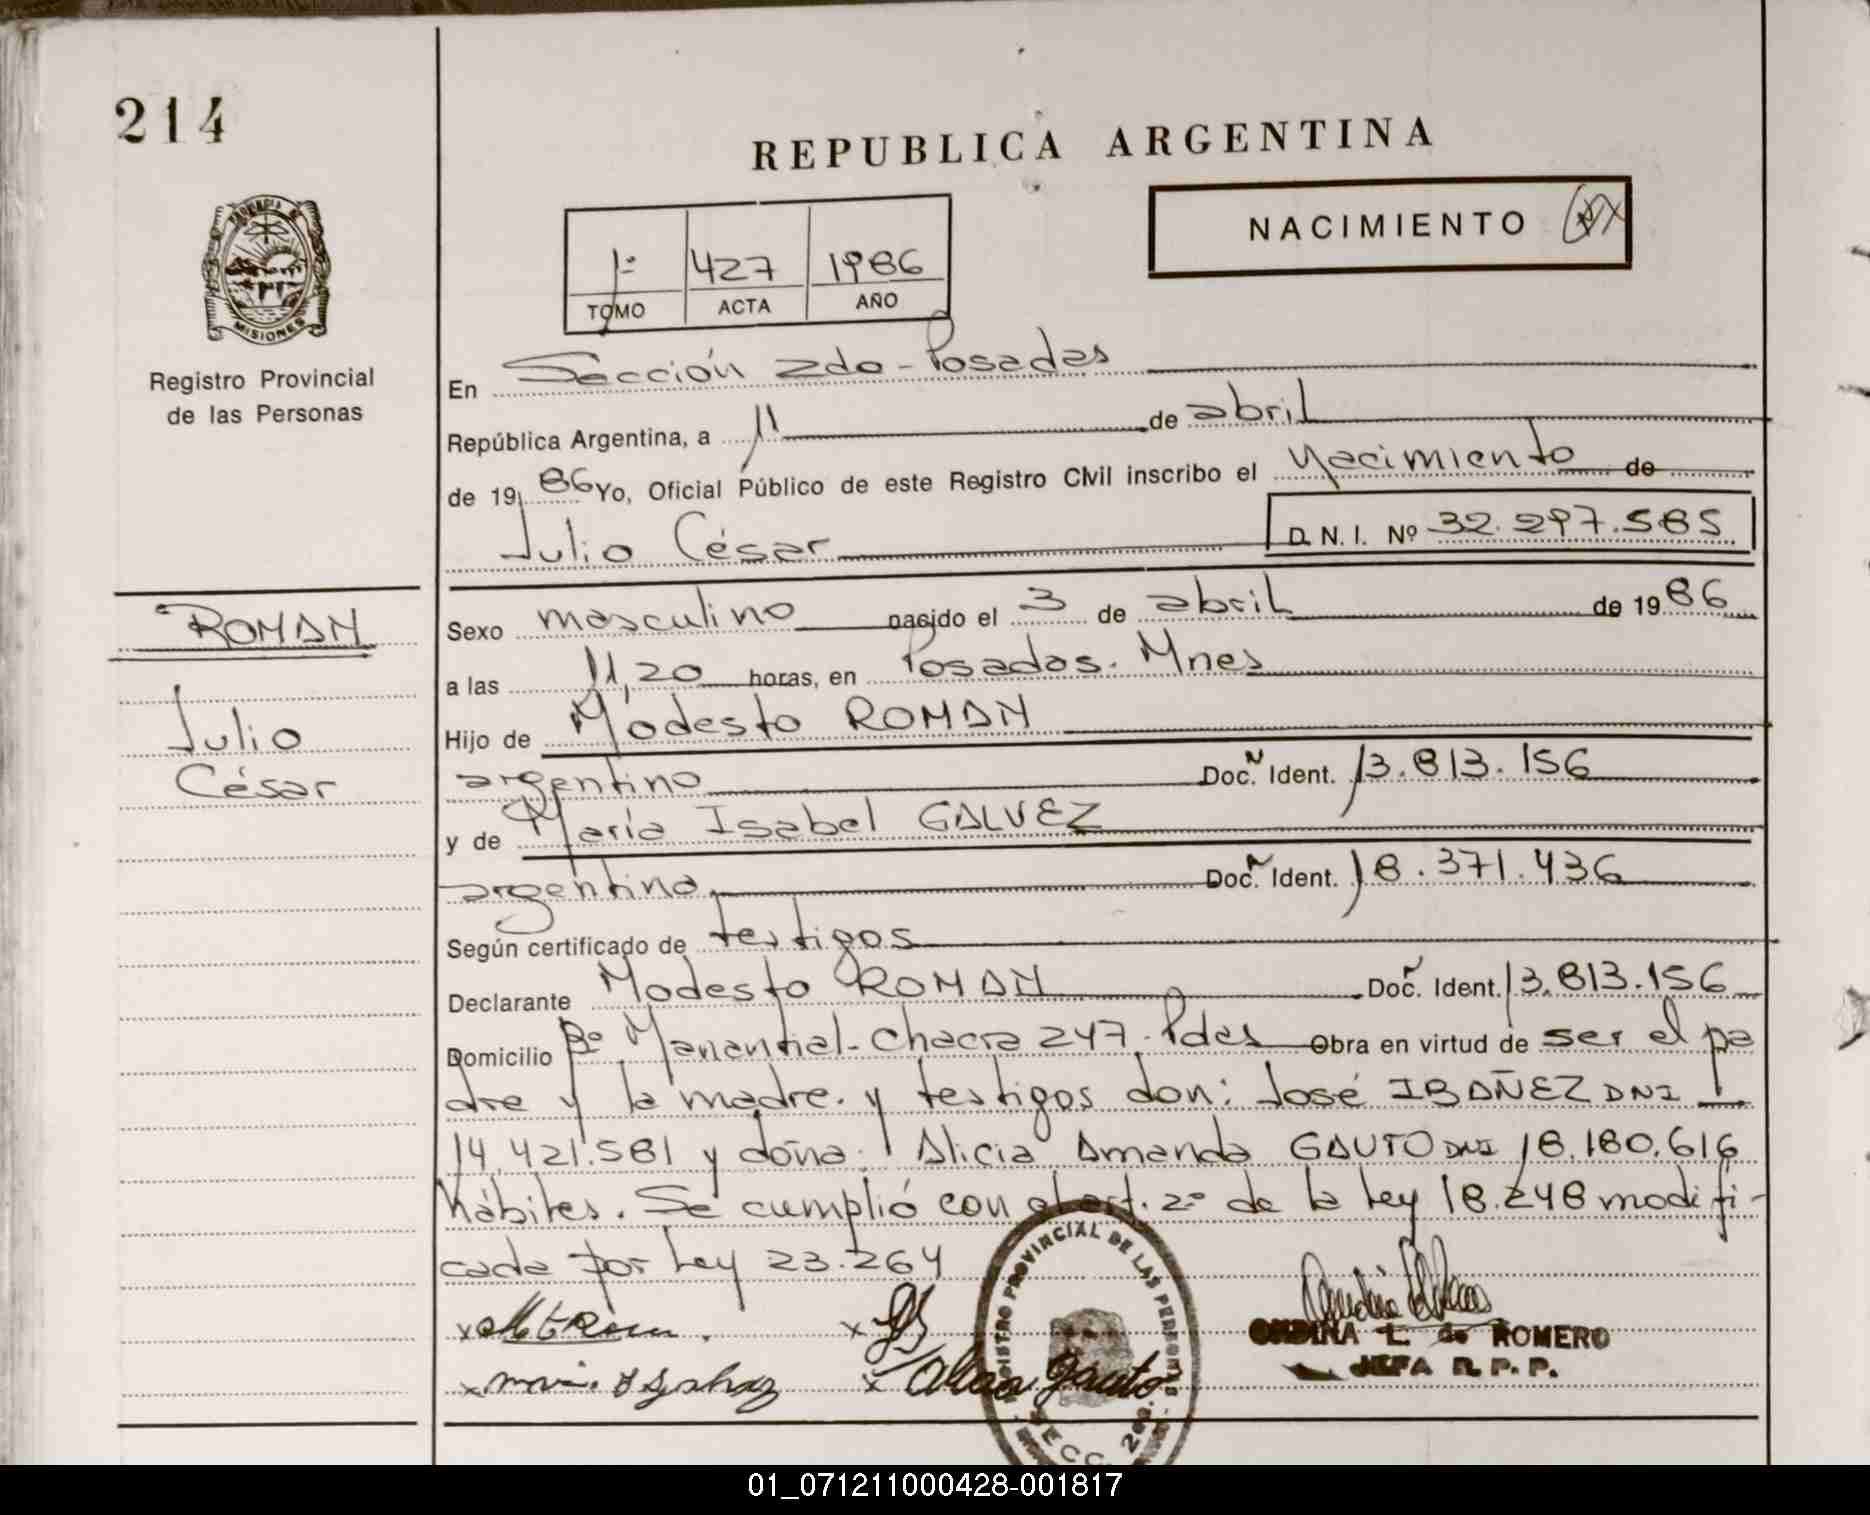 214
REPUBLICA ARGENTINA
NACIMIENTO
1º 427 1986
TOMO ACTA AÑO
PROVINCIA DE
MISIONES
Registro Provincial
de las Personas
En Sección 2do - Posadas
República Argentina, a 11 de abril
de 1986 Yo, Oficial Público de este Registro Civil inscribo el Nacimiento de
Julio César D. N. I. Nº 32.297.585
ROMAN
Julio
César
Sexo masculino nacido el 3 de abril de 1986
a las 11,20 horas, en Posadas. Mnes
Hijo de Modesto ROMAN
argentino Doc. Ident. 13.813.156
y de María Isabel GALVEZ
argentina Doc. Ident. 18.371.436
Según certificado de testigos
Declarante Modesto ROMAN Doc. Ident. 13.813.156
Domicilio Bº Manantial - Chacra 247 - Pdas Obra en virtud de ser el pa
dre y la madre. y testigos don: José IBAÑEZ DNI
14.421.581 y doña: Alicia Amanda GAUTO DNI 18.180.616
hábiles. Se cumplió con el art. 2º de la Ley 18.248 modifi-
cada por Ley 23.264
REGISTRO PROVINCIAL DE LAS PERSONAS
SECC. 2da.
x x
x x Alicia Gauto
ONDINA L. de ROMERO
JEFA R. P. P.
01_071211000428-001817